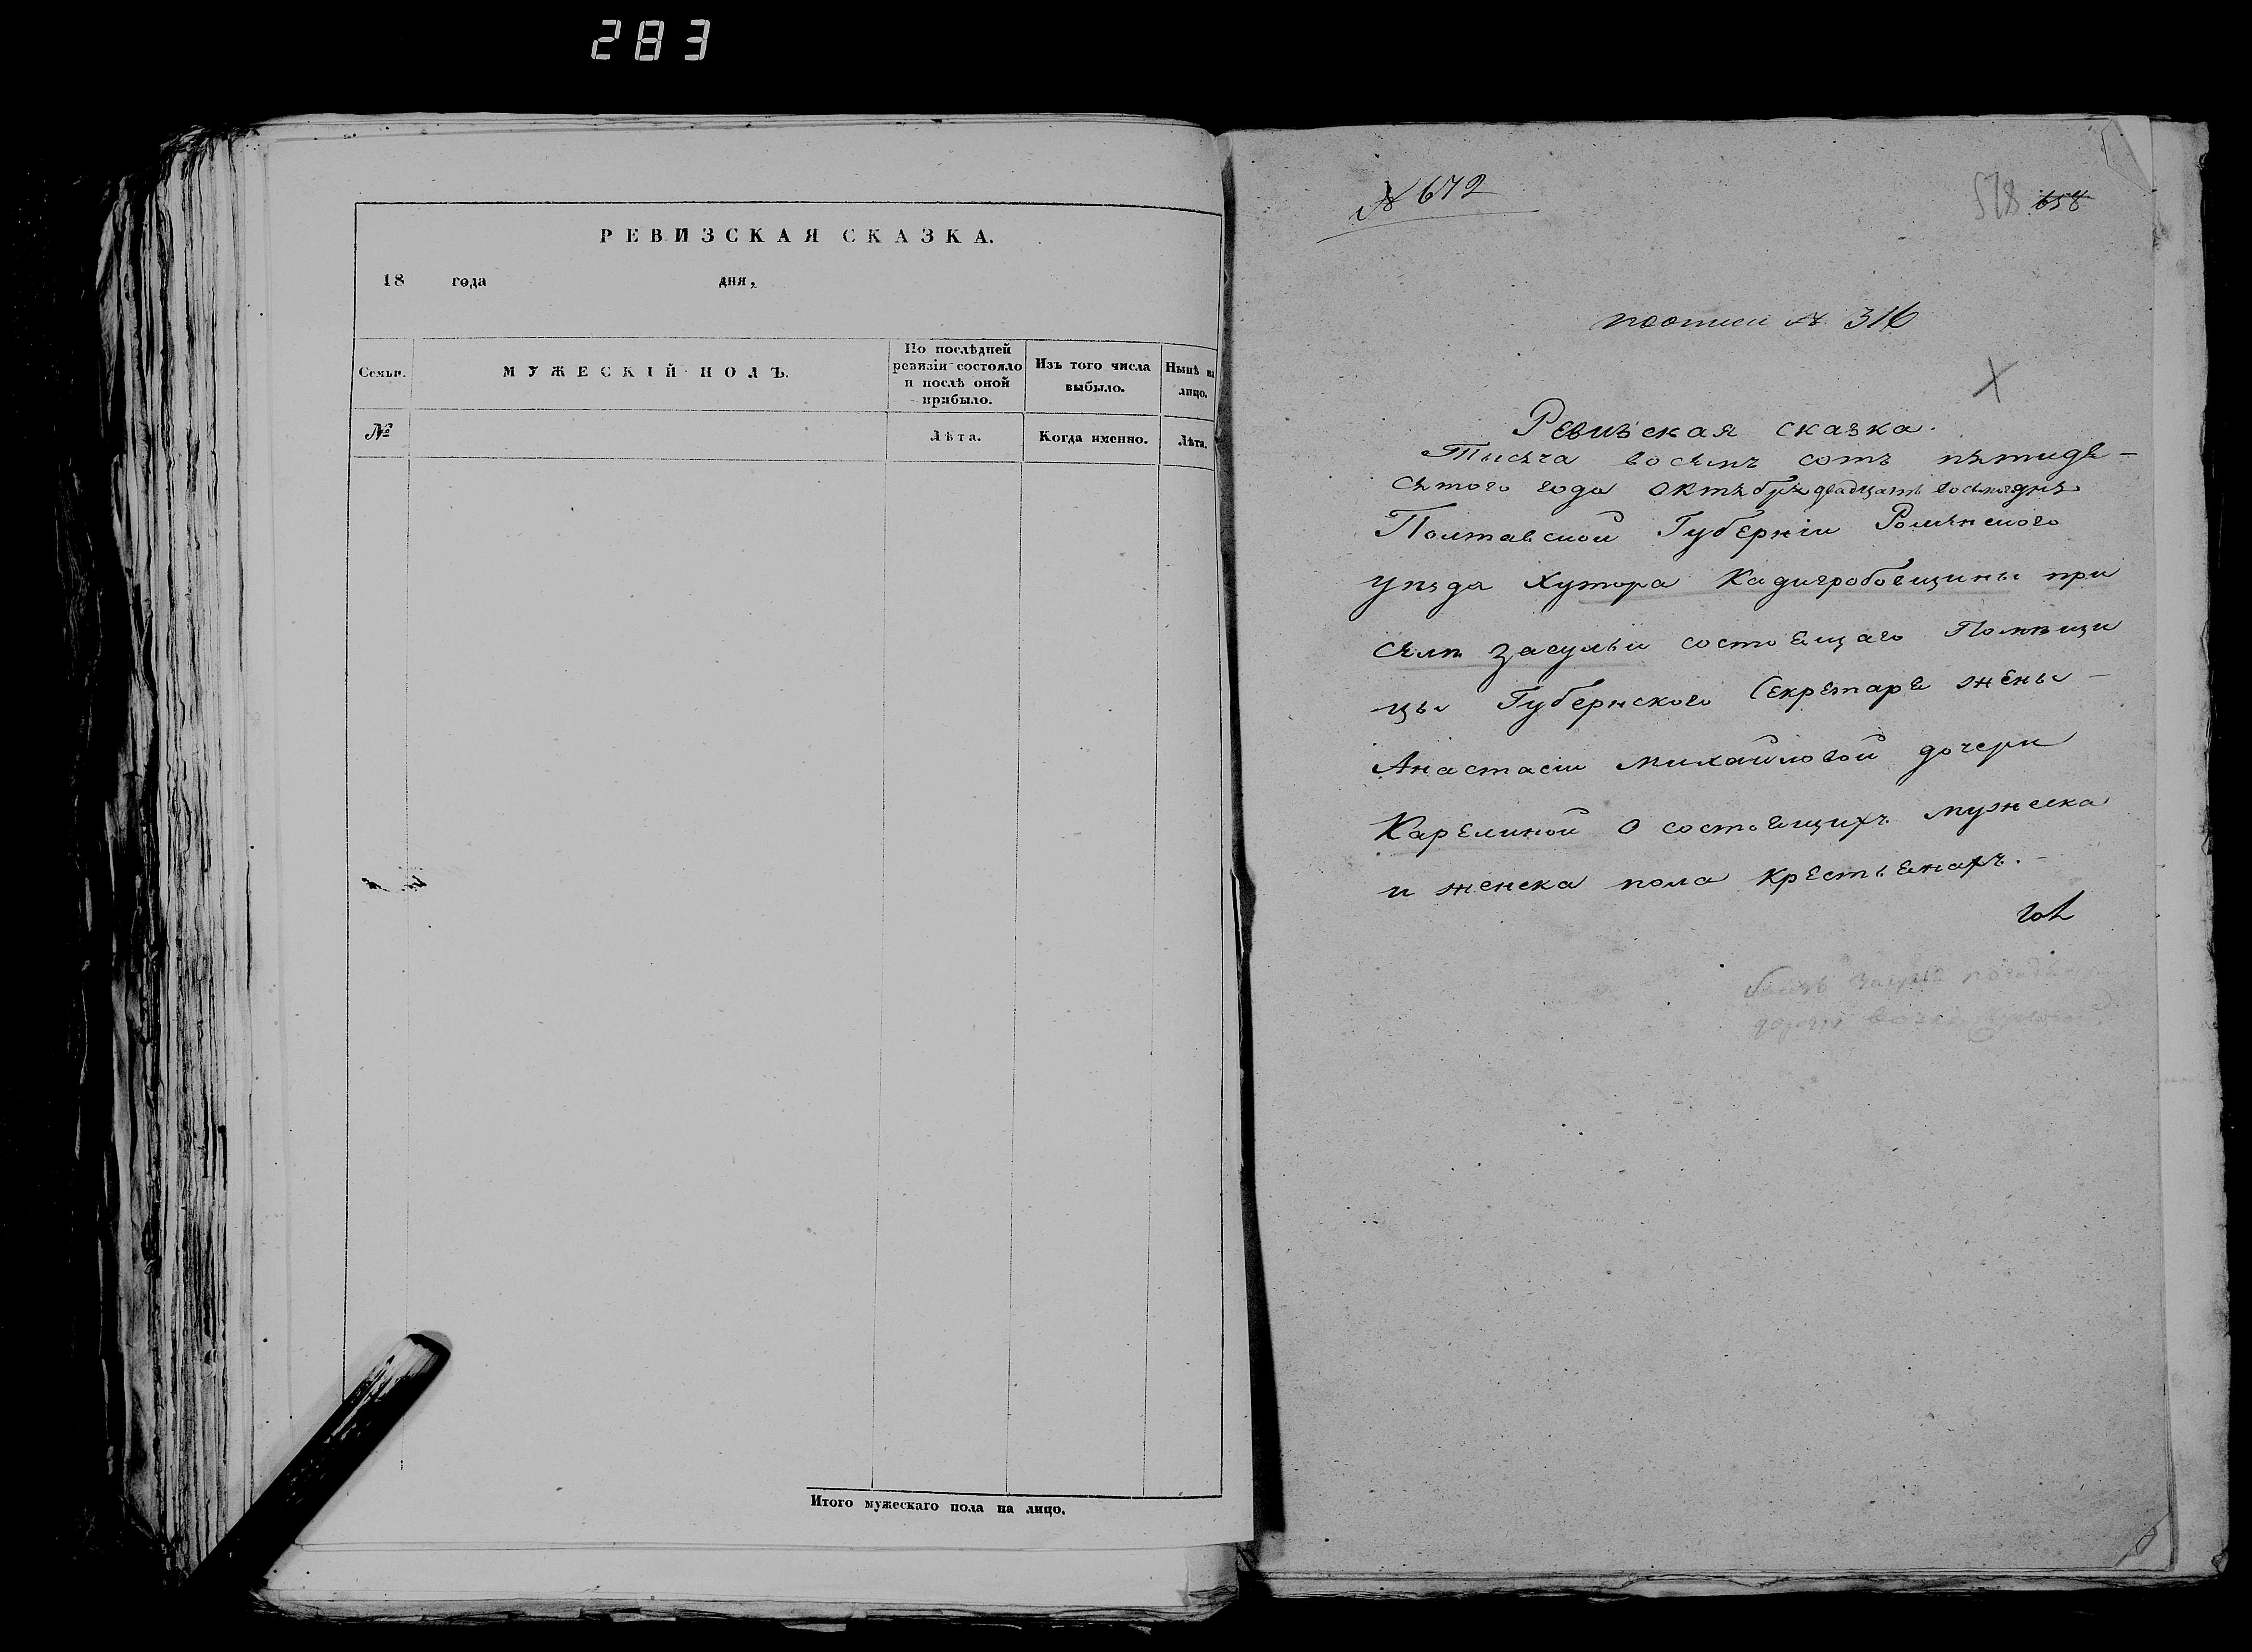 283
РЕВИЗСКАЯ СКАЗКА.
18 года дня,
Семьи.
МУЖЕСКІЙ ПОЛЪ.
По послѣдней ревизіи состояло и послѣ оной прибыло.
Изъ того числа выбыло.
Нынѣ на лицо.
№
Лѣта.
Когда именно.
Лѣта.
Итого мужескаго пола на лицо.
№ 672
518 658
№ 316
Ревизская сказка.
Тысяча восемъ сотъ пятиде-
сятого года октября двадцать восмого дня
Полтавской Губерніи Роменского
уѣзда Хутора Кадигробовщины при
селѣ Засульи состоящаго Помѣщи
цы Губернского Секретаря жены-
Анастасіи Михайловой дочери
Карелиной о состоящихъ мужеска
и женска пола крестьянахъ.-